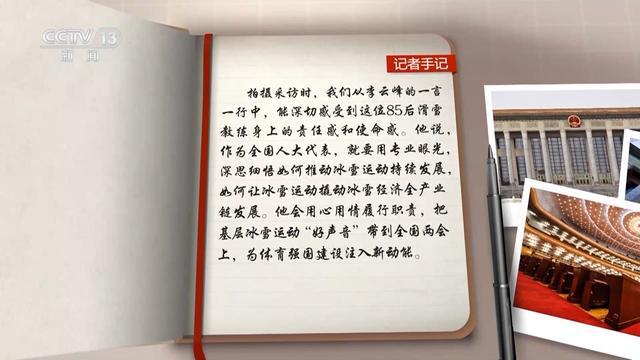 CCTV 13
新闻
记者手记
拍摄采访时，我们从李云峰的一言
一行中，能深切感受到这位85后滑雪
教练身上的责任感和使命感。他说，
作为全国人大代表，就要用专业眼光，
深思细悟如何推动冰雪运动持续发展，
如何让冰雪运动撬动冰雪经济全产业
链发展。他会用心用情履行职责，把
基层冰雪运动“好声音”带到全国两会
上，为体育强国建设注入新动能。